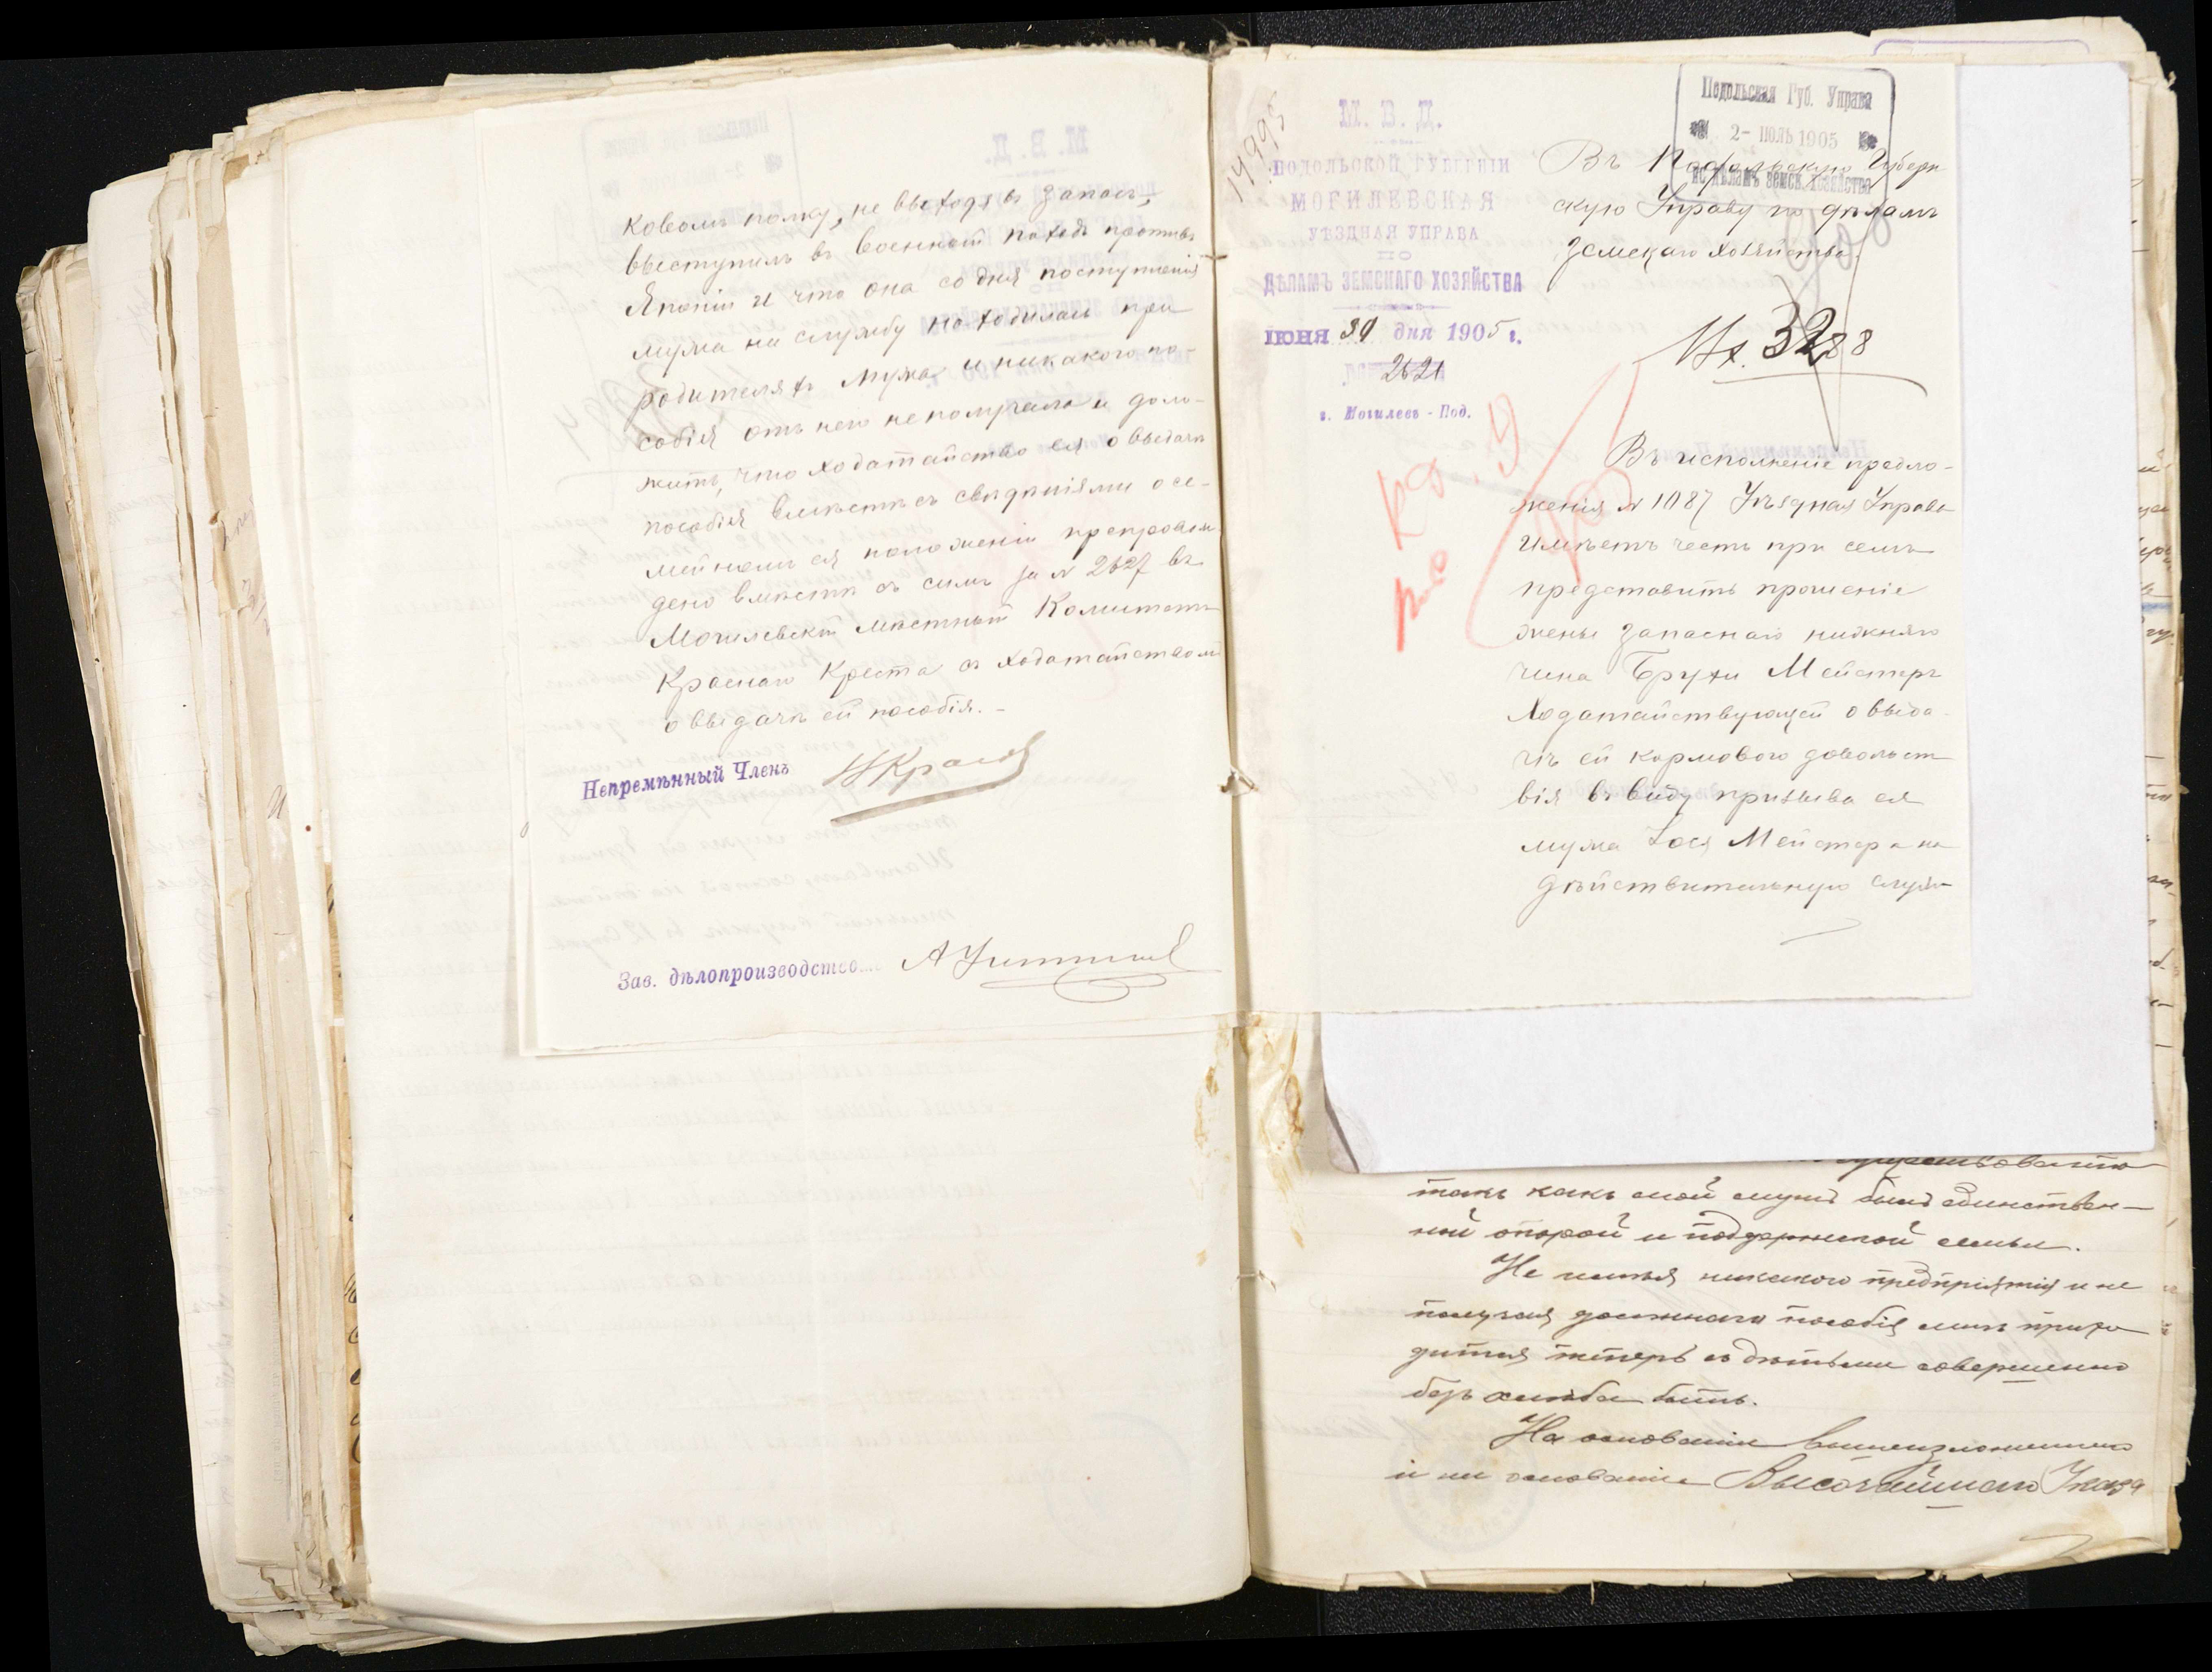 ковомъ полку, не выходя въ запасъ,
выступилъ въ военный походъ противъ
Японіи и что она со дня поступленія
мужа на службу находилась при
родителяхъ мужа и никакого по-
собія отъ него не получала и доло-
жить, что ходатайство ея о выдачѣ
пособія вмѣстѣ съ свѣдѣніями о се-
мейномъ ея положеніи препровож-
дено вмѣстѣ съ симъ за № 2627 въ
Могилевскій мѣстный Комитетъ
Краснаго Креста съ ходатайствомъ
о выдачѣ ей пособія.-
Непремѣнный Членъ
Зав. дѣлопроизводство
14995
М. В. Д.
ПОДОЛЬСКОЙ ГУБЕРНІИ
МОГИЛЕВСКАЯ
УѢЗДНАЯ УПРАВА
ПО
ДѢЛАМЪ ЗЕМСКАГО ХОЗЯЙСТВА
ІЮНЯ 30 дня 1905 г.
2621
г. Могилевъ - Под.
Подольская Губ. Управа
2- ІЮЛЬ 1905
по дѣламъ земск. хозяйства
Въ Подольскую Губерн
скую Управу по дѣламъ
земскаго хозяйства.
Вх. 3288
Въ исполненіе предло-
женія № 1187 Уѣздная Управа
имѣетъ честь при семъ
представить прошеніе
жены запаснаго нижняго
чина Брухи Мейстеръ
ходатайствующей о выда-
чѣ ей кормового довольст
вія въ виду призыва ея
мужа Іося Мейстера на
дѣйствительную служ-
существованію
такъ какъ мой мужъ былъ единствен-
ной опорой и поддержкой семьи.
Не имѣя никакого предпріятія и не
получая должнаго пособія мнѣ прихо-
дится теперь съ дѣтьми совершенно
безъ хлѣба быть.
На основаніи вышеизложеннаго
и на основаніи Высочайшаго Указа